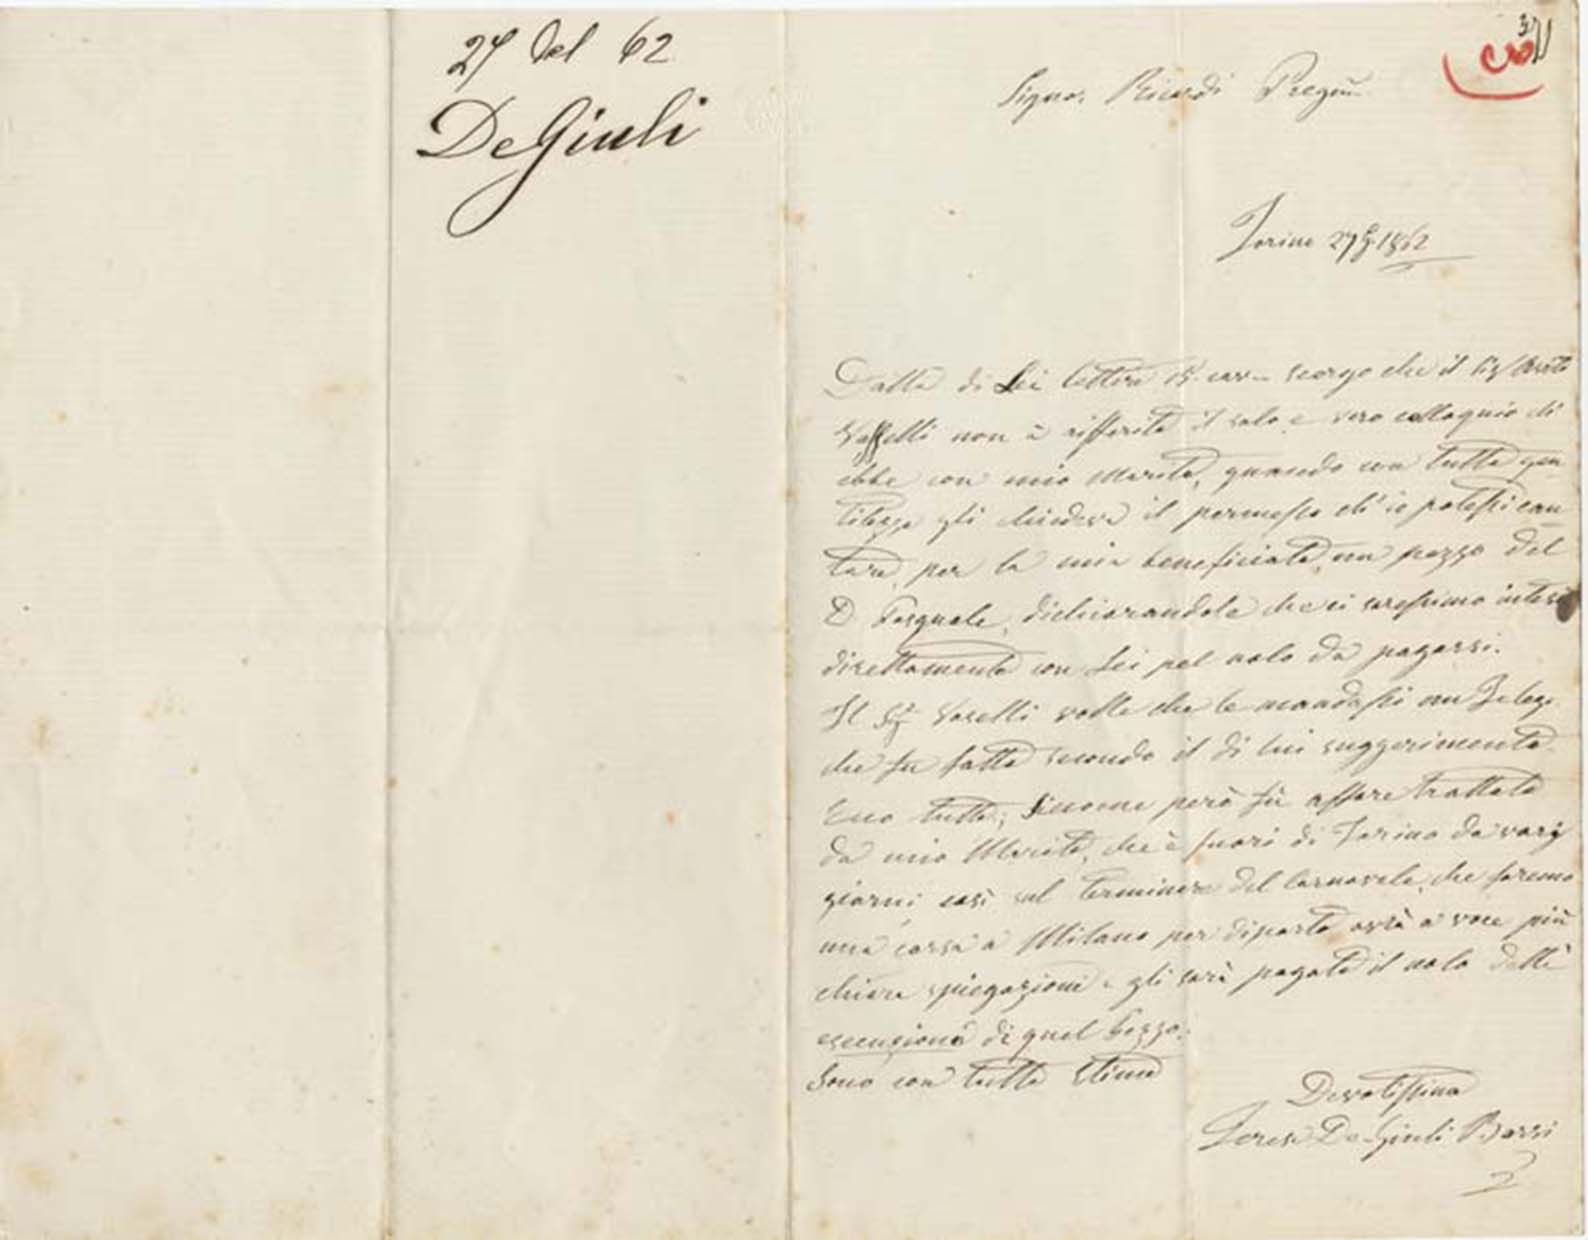 27 del 62
DeGiuli
Signor Ricordi Pregmo
Torino 27 1862
Dalla di Lei lettera 15 corr scorgo che il Sig
Vasselli non à rifferito il solo e vero colloquio ch'
ebbe con mio Marito, quando con tutta gen
tilezza gli chiedeva il permesso ch' io potessi can
tare, per la mia beneficiata, un pezzo del
D. Pasquale, dichiarandole che ci saressimo intesi
direttamente con Lei pel nolo da pagarsi.
Il Sigr Vaselli volle che le mandassi un Teleg.
che fu fatto secondo il di lui suggerimento.
Ecco tutto; siccome però fù affare trattato
da mio Marito, che è fuori di Torino da varj
giorni, così sul terminare del Carnovale, che faremo
una corsa a Milano per diporto, avrà a voce più
chiare spiegazioni e gli sarà pagato il nolo
esecuzione di quel Pezzo.
Sono con tutta stima
Devotissima
Teresa De-Giuli Borsi